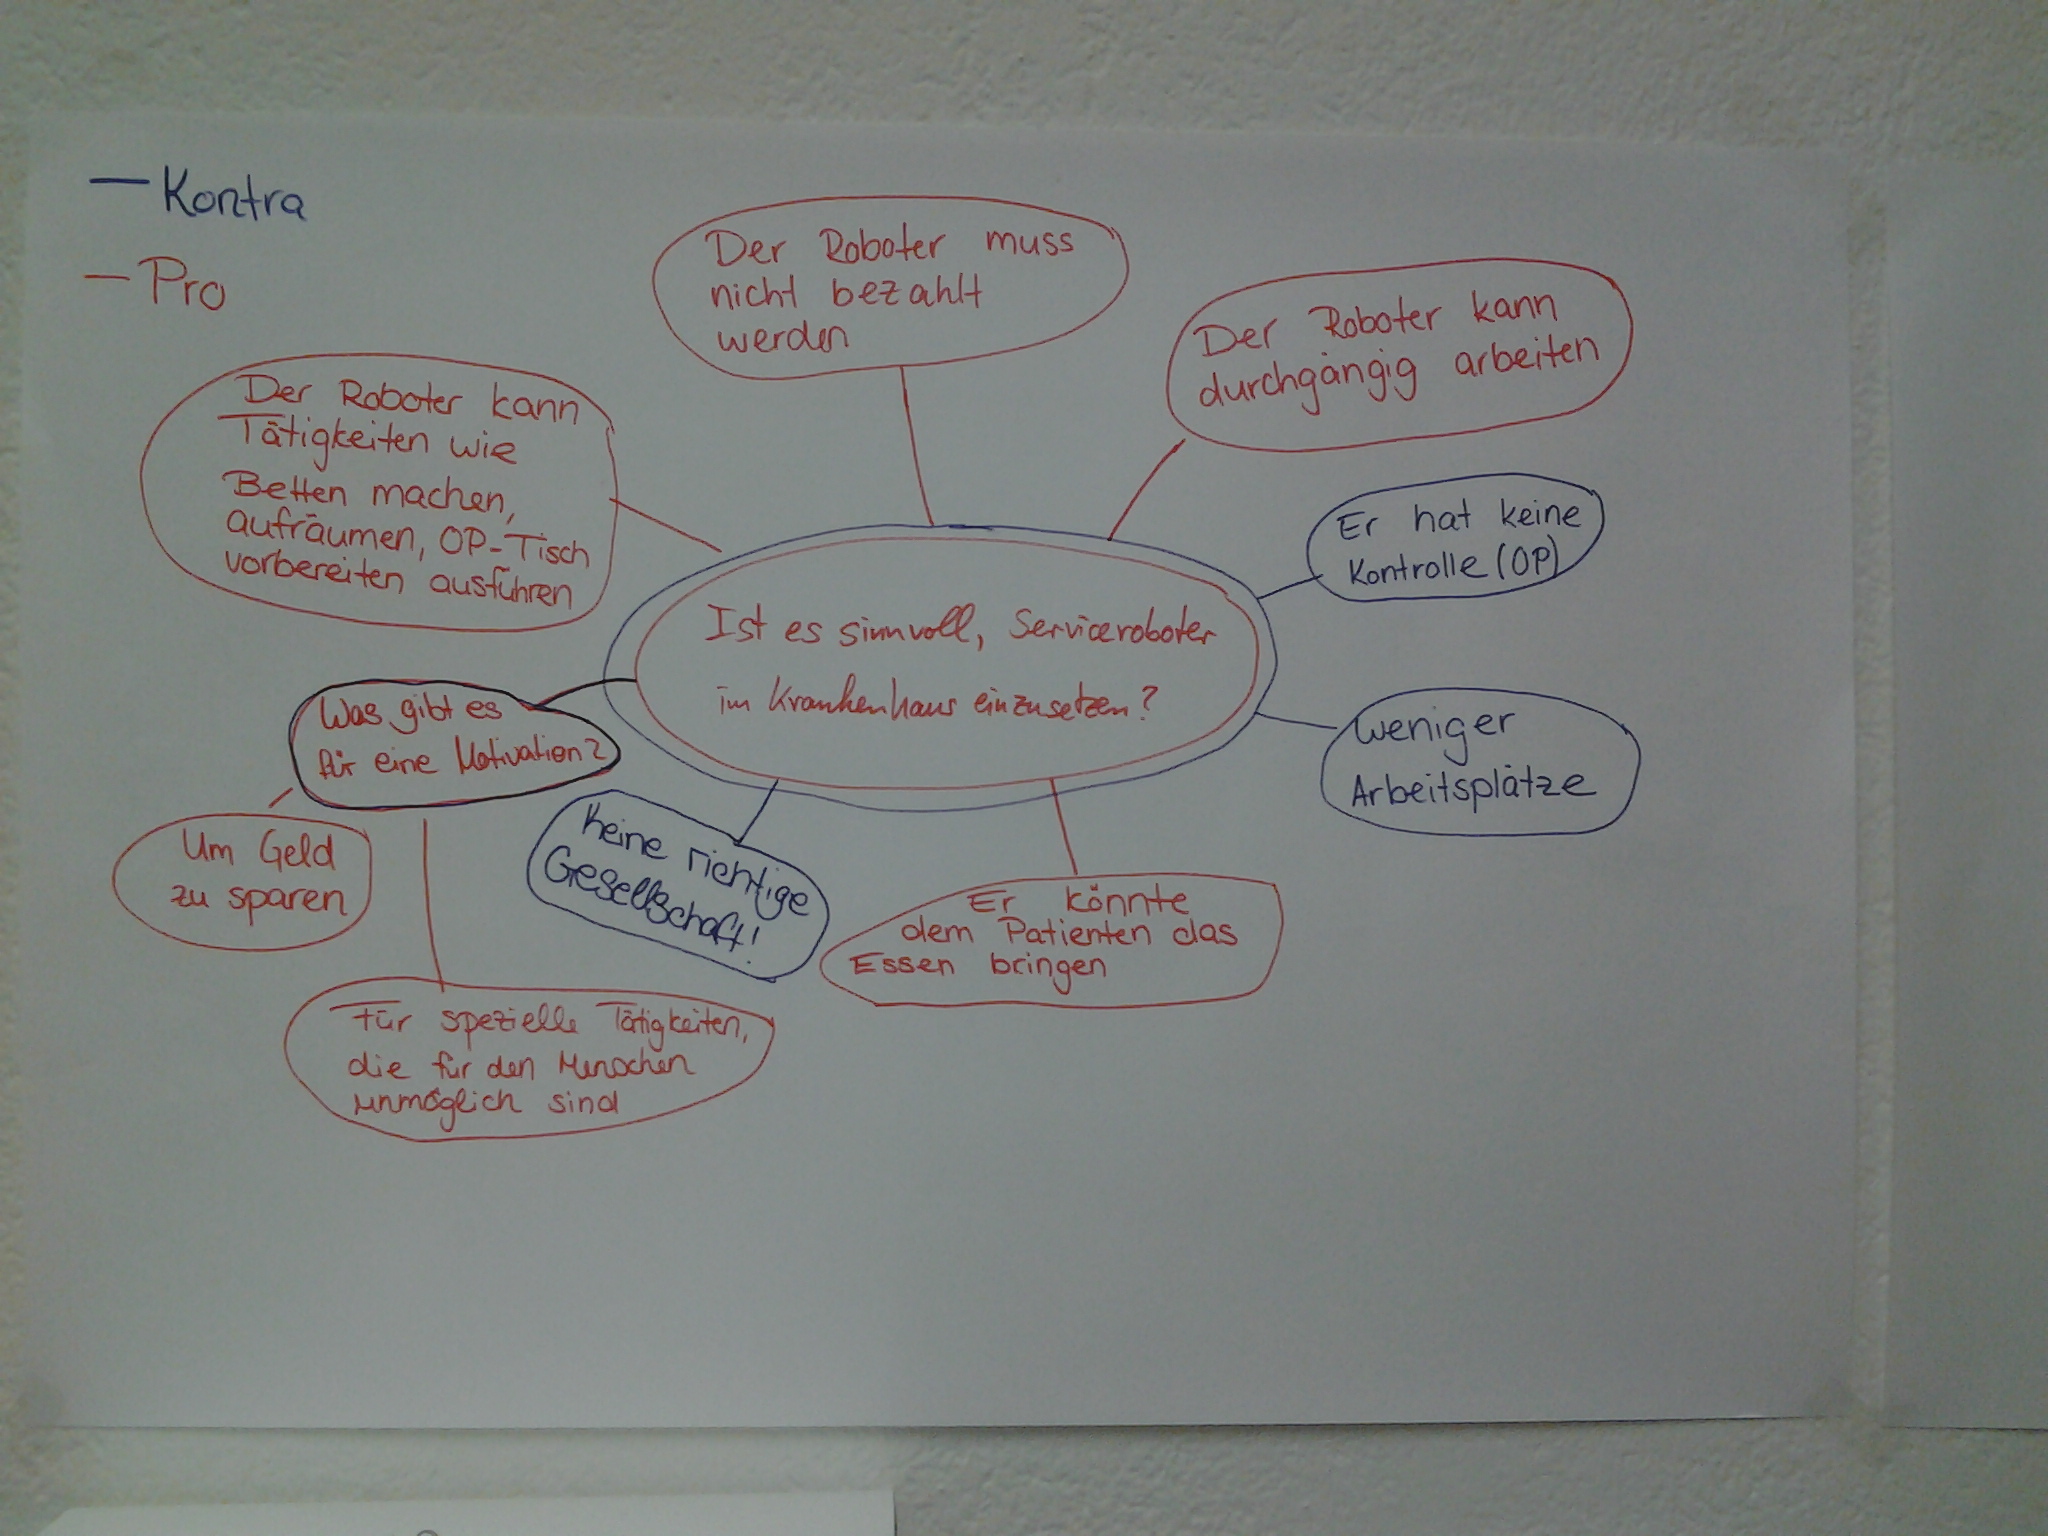 — Kontra
— Pro
Der Roboter muss
nicht bezahlt
werden
Der Roboter kann
durchgängig arbeiten
Der Roboter kann
Tätigkeiten wie
Betten machen,
aufräumen, OP-Tisch
vorbereiten ausführen
Er hat keine
Kontrolle (OP)
Ist es sinnvoll, Serviceroboter
im Krankenhaus einzusetzen?
Was gibt es
für eine Motivation?
Weniger
Arbeitsplätze
Um Geld
zu sparen
Keine richtige
Gesellschaft!
Er könnte
dem Patienten das
Essen bringen
Für spezielle Tätigkeiten,
die für den Menschen
unmöglich sind